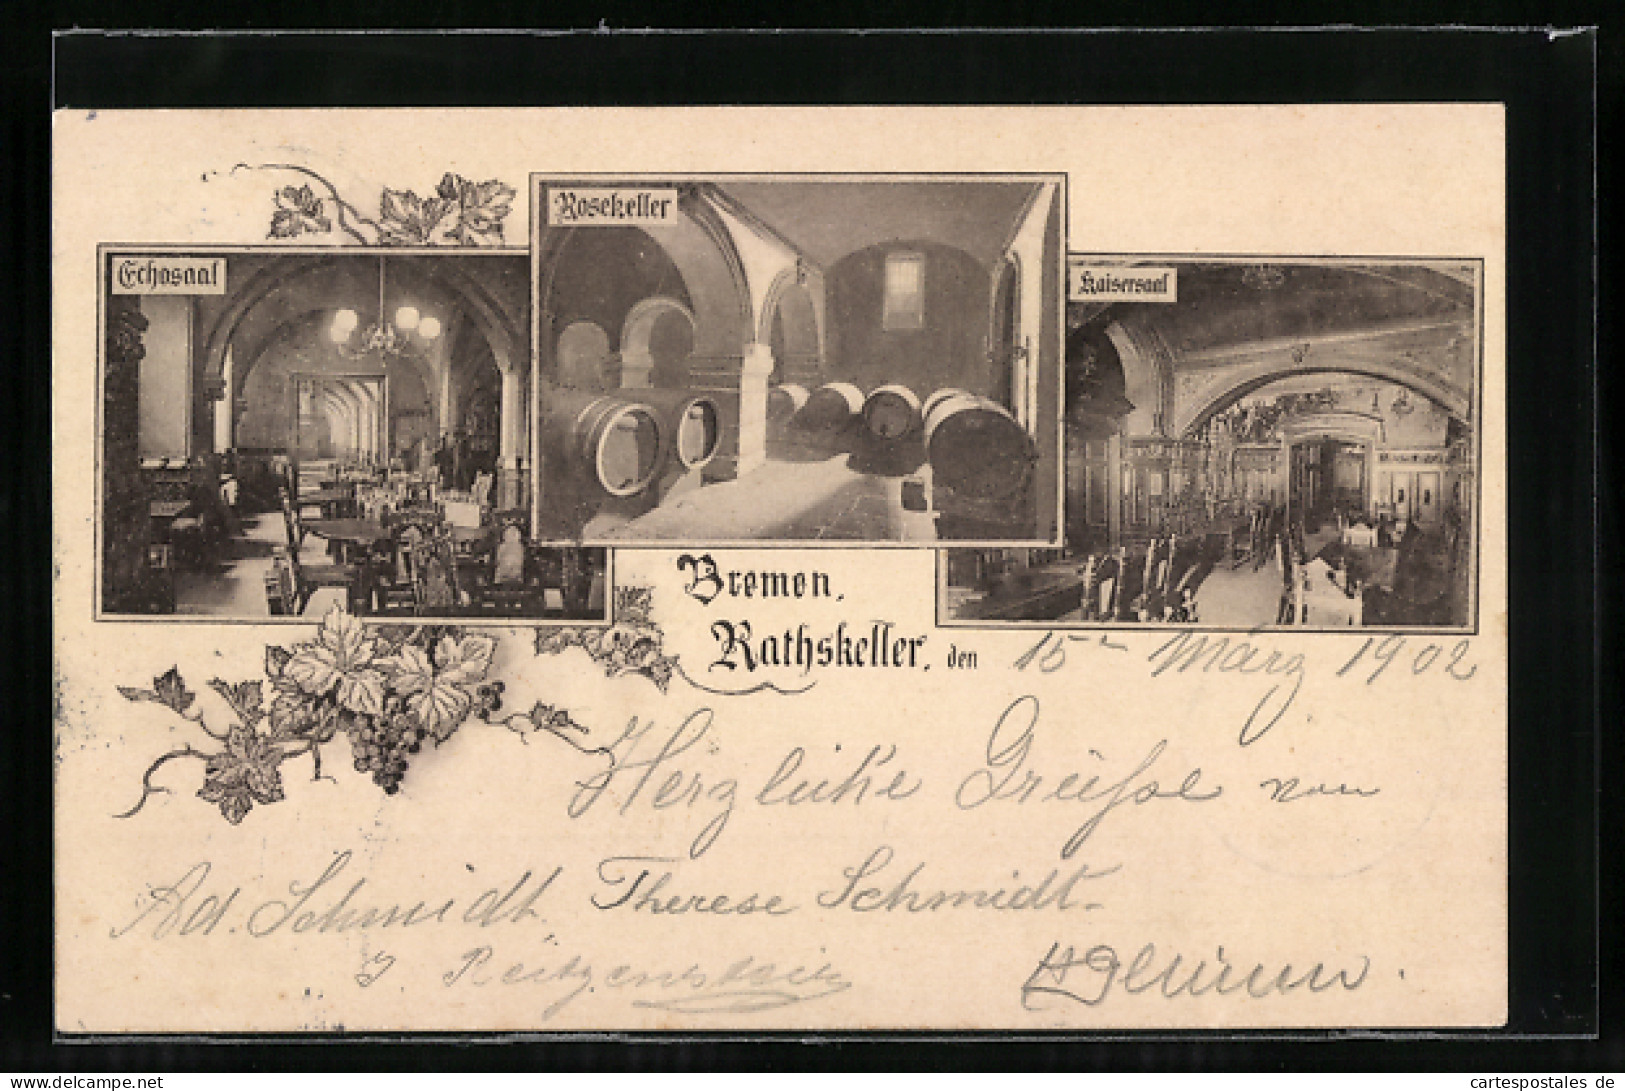 Echosaal
Rosekeller
Kaisersaal
Bremen,
Rathskeller, den 15 März 1902
Herzliche Grüße von
Ad. Schmidt. Therese Schmidt
delcampe.net
cartespostales de